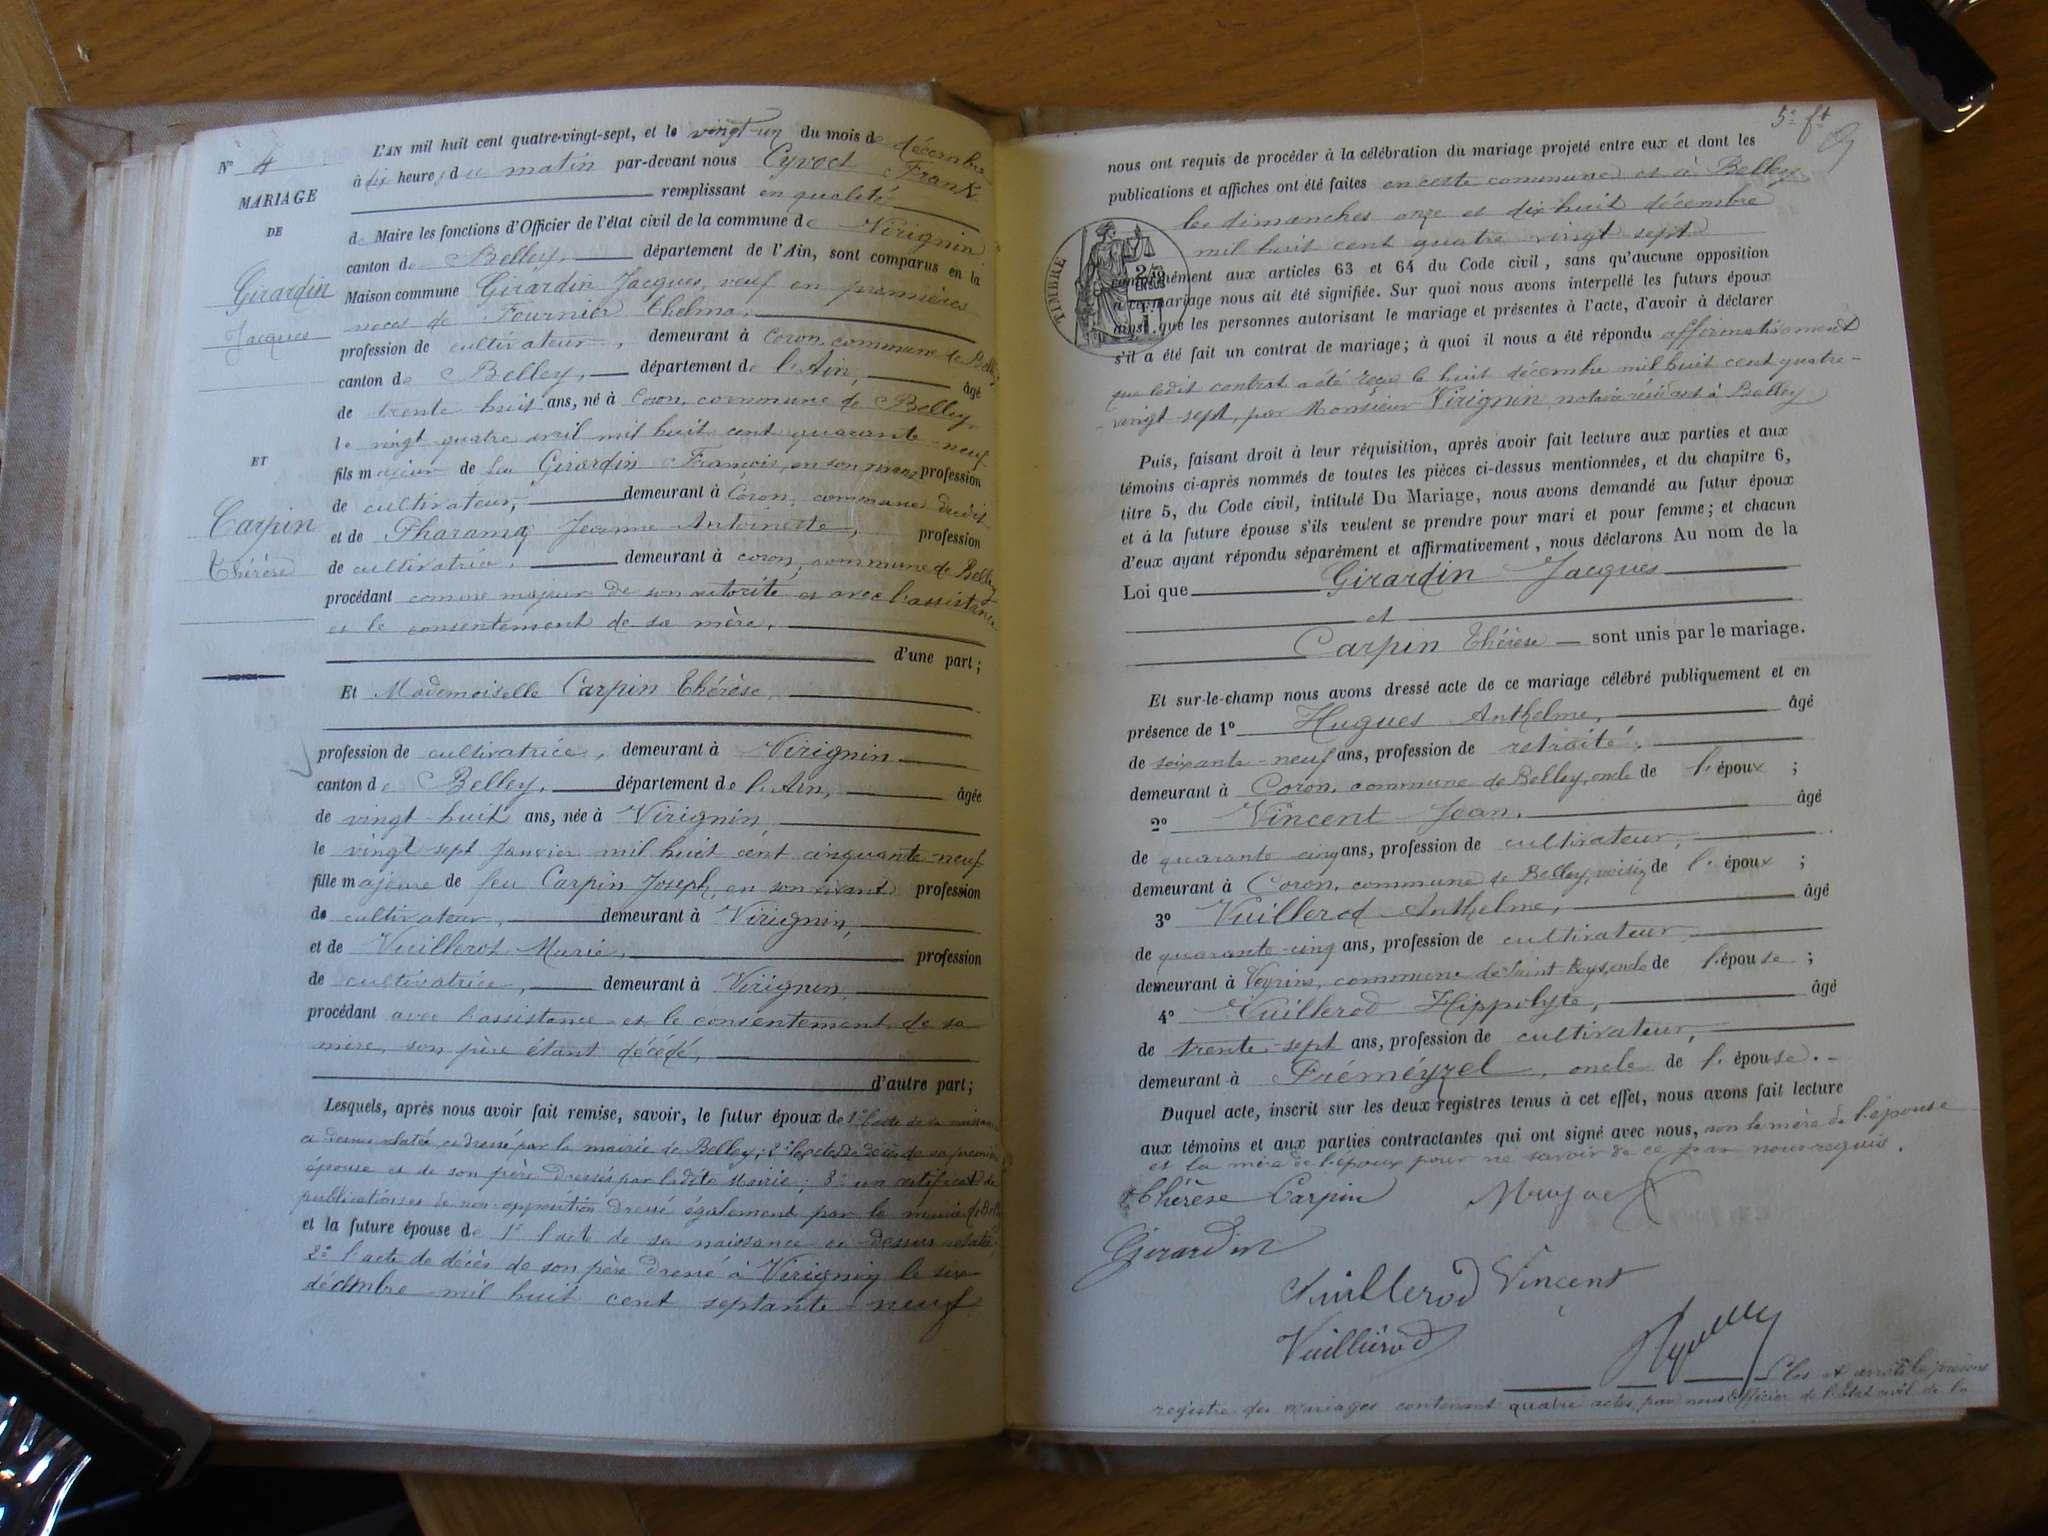 N° 4
MARIAGE
DE
Girardin
Jacques
ET
Carpin
Thérèse
L'AN mil huit cent quatre-vingt-sept, et le vingt-un du mois de décembre
à dix heures du matin par-devant nous Cyvoct Frank
remplissant en qualité
de Maire les fonctions d'Officier de l'état civil de la commune de Virignin
canton de Belley, département de l'Ain, sont comparus en la
Maison commune Girardin Jacques, veuf en premières
noces de Fournier Thelma,
profession de cultivateur, demeurant à Coron, commune de Belley
canton de Belley, département de l'Ain, âgé
de trente huit ans, né à Coron, commune de Belley,
le vingt quatre avril mil huit cent quarante-neuf
fils majeur de feu Girardin François, en son vivant profession
de cultivateur, demeurant à Coron, commune dudit
et de Pharama Jeanne Antoinette, profession
de cultivatrice, demeurant à Coron, commune de Belley
procédant comme majeur de son autorité et avec l'assistance
et le consentement de sa mère,
d'une part;
Et Mademoiselle Carpin Thérèse,
profession de cultivatrice, demeurant à Virignin
canton de Belley, département de l'Ain, âgée
de vingt-huit ans, née à Virignin,
le vingt sept Janvier mil huit cent cinquante-neuf
fille majeure de feu Carpin Joseph, en son vivant profession
de cultivateur, demeurant à Virignin,
et de Vuillerot Marie, profession
de cultivatrice, demeurant à Virignin,
procédant avec l'assistance et le consentement de sa
mère, son père étant décédé,
d'autre part;
Lesquels, après nous avoir fait remise, savoir, le futur époux de 1° l'acte de sa naissance
ci dessus relatée et dressé par la mairie de Belley; 2° les actes de décès de sa première
épouse et de son père dressés par ladite Mairie; 3° un certificat de
publications et de non-opposition dressé également par la mairie de Belley
et la future épouse de 1° l'acte de sa naissance ci-dessus relatée
2° l'acte de décès de son père dressé à Virignin le six
décembre mil huit cent septante-neuf
5e ft
nous ont requis de procéder à la célébration du mariage projeté entre eux et dont les
publications et affiches ont été faites en cette commune et à Belley
les dimanches onze et dix huit décembre
mil huit cent quatre vingt sept
TIMBRE
conformément aux articles 63 et 64 du Code civil, sans qu'aucune opposition
à ce mariage nous ait été signifiée. Sur quoi nous avons interpellé les futurs époux
ainsi que les personnes autorisant le mariage et présentes à l'acte, d'avoir à déclarer
s'il a été fait un contrat de mariage; à quoi il nous a été répondu affirmativement
que ledit contrat a été reçu le huit décembre mil huit cent quatre-
vingt-sept, par Monsieur Virignin notaire résidant à Belley
Puis, faisant droit à leur réquisition, après avoir fait lecture aux parties et aux
témoins ci-après nommés de toutes les pièces ci-dessus mentionnées, et du chapitre 6,
titre 5, du Code civil, intitulé Du Mariage, nous avons demandé au futur époux
et à la future épouse s'ils veulent se prendre pour mari et pour femme; et chacun
d'eux ayant répondu séparément et affirmativement, nous déclarons Au nom de la
Loi que Girardin Jacques
et
Carpin Thérèse sont unis par le mariage.
Et sur-le-champ nous avons dressé acte de ce mariage célébré publiquement et en
présence de 1° Hugues Anthelme, âgé
de soixante-neuf ans, profession de retraité,
demeurant à Coron, commune de Belley, oncle de l'époux ;
2° Vincent Jean, âgé
de quarante cinq ans, profession de cultivateur,
demeurant à Coron, commune de Belley, voisin de l'époux ;
3° Vuillerod Anthelme, âgé
de quarante-cinq ans, profession de cultivateur,
demeurant à Veyrins, commune de Saint Boys, oncle de l'épouse ;
4° Vuillerod Hippolyte, âgé
de trente-sept ans, profession de cultivateur,
demeurant à Préméyzel, oncle de l'épouse.
Duquel acte, inscrit sur les deux registres tenus à cet effet, nous avons fait lecture
aux témoins et aux parties contractantes qui ont signé avec nous, non la mère de l'épouse
et la mère de l'époux pour ne savoir de ce par nous requis.
Thérèse Carpin
Girardin
Vuillerod Vincent
Vuilliérod
Clos et arrêté le présent
registre des mariages contenant quatre actes, par nous Officier de l'Etat civil de la